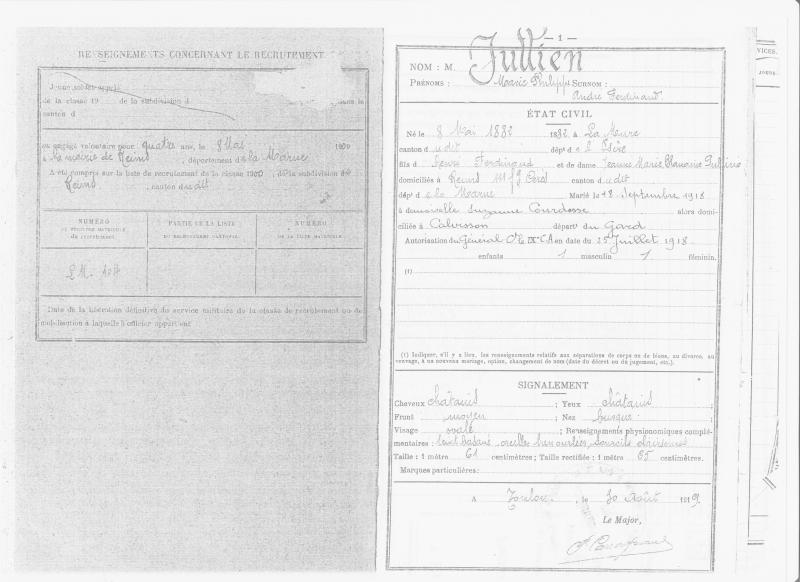 RENSEIGNEMENTS CONCERNANT LE RECRUTEMENT
Jeune soldat appelé
de la classe 19 de la subdivision d dans le
canton d
ou engagé volontaire pour quatre ans, le 8 Mai 1900
à la mairie de Reims, département de la Marne
A été compris sur la liste de recrutement de la classe 1900, de la subdivision de
Reims, canton du dit
NUMÉRO PARTIE DE LA LISTE NUMÉRO
DU REGISTRE MATRICULE DU RECRUTEMENT CANTONAL DE LA LISTE MATRICULE
du recrutement
Date de la libération définitive du service militaire de la classe de recrutement ou de
mobilisation à laquelle l'officier appartient
— 1 —
NOM : M. Jullien
PRÉNOMS : Marie Philippe SURNOM :
André Ferdinand
ÉTAT CIVIL
Né le 8 Mai 1882 1882 à La Mure
canton du dit dépt de l'Isère
fils d Ferdinand et de dame Jeanne Marie
domiciliés à Reims canton du dit
dépt de la Marne Marié le 18 Septembre 1918
à demoiselle Suzanne Courdesse alors domi-
ciliée à Calvisson départt du Gard
Autorisation du Général en date du 25 Juillet 1918
enfants 1 masculin 1 féminin.
(1)
(1) Indiquer, s'il y a lieu, les renseignements relatifs aux séparations de corps ou de biens, au divorce, au
veuvage, à un nouveau mariage, option, changement de nom (date du décret ou du jugement, etc.).
SIGNALEMENT
Cheveux châtains ; Yeux châtains
Front moyen ; Nez busqué ;
Visage ovale ; Renseignements physionomiques complé-
mentaires : teint basané, oreilles bien ourlées, sourcils
Taille : 1 mètre 61 centimètres ; Taille rectifiée : 1 mètre 65 centimètres.
Marques particulières :
A Toulon, le 30 Août 1919.
Le Major,
VICES.
JOURS.